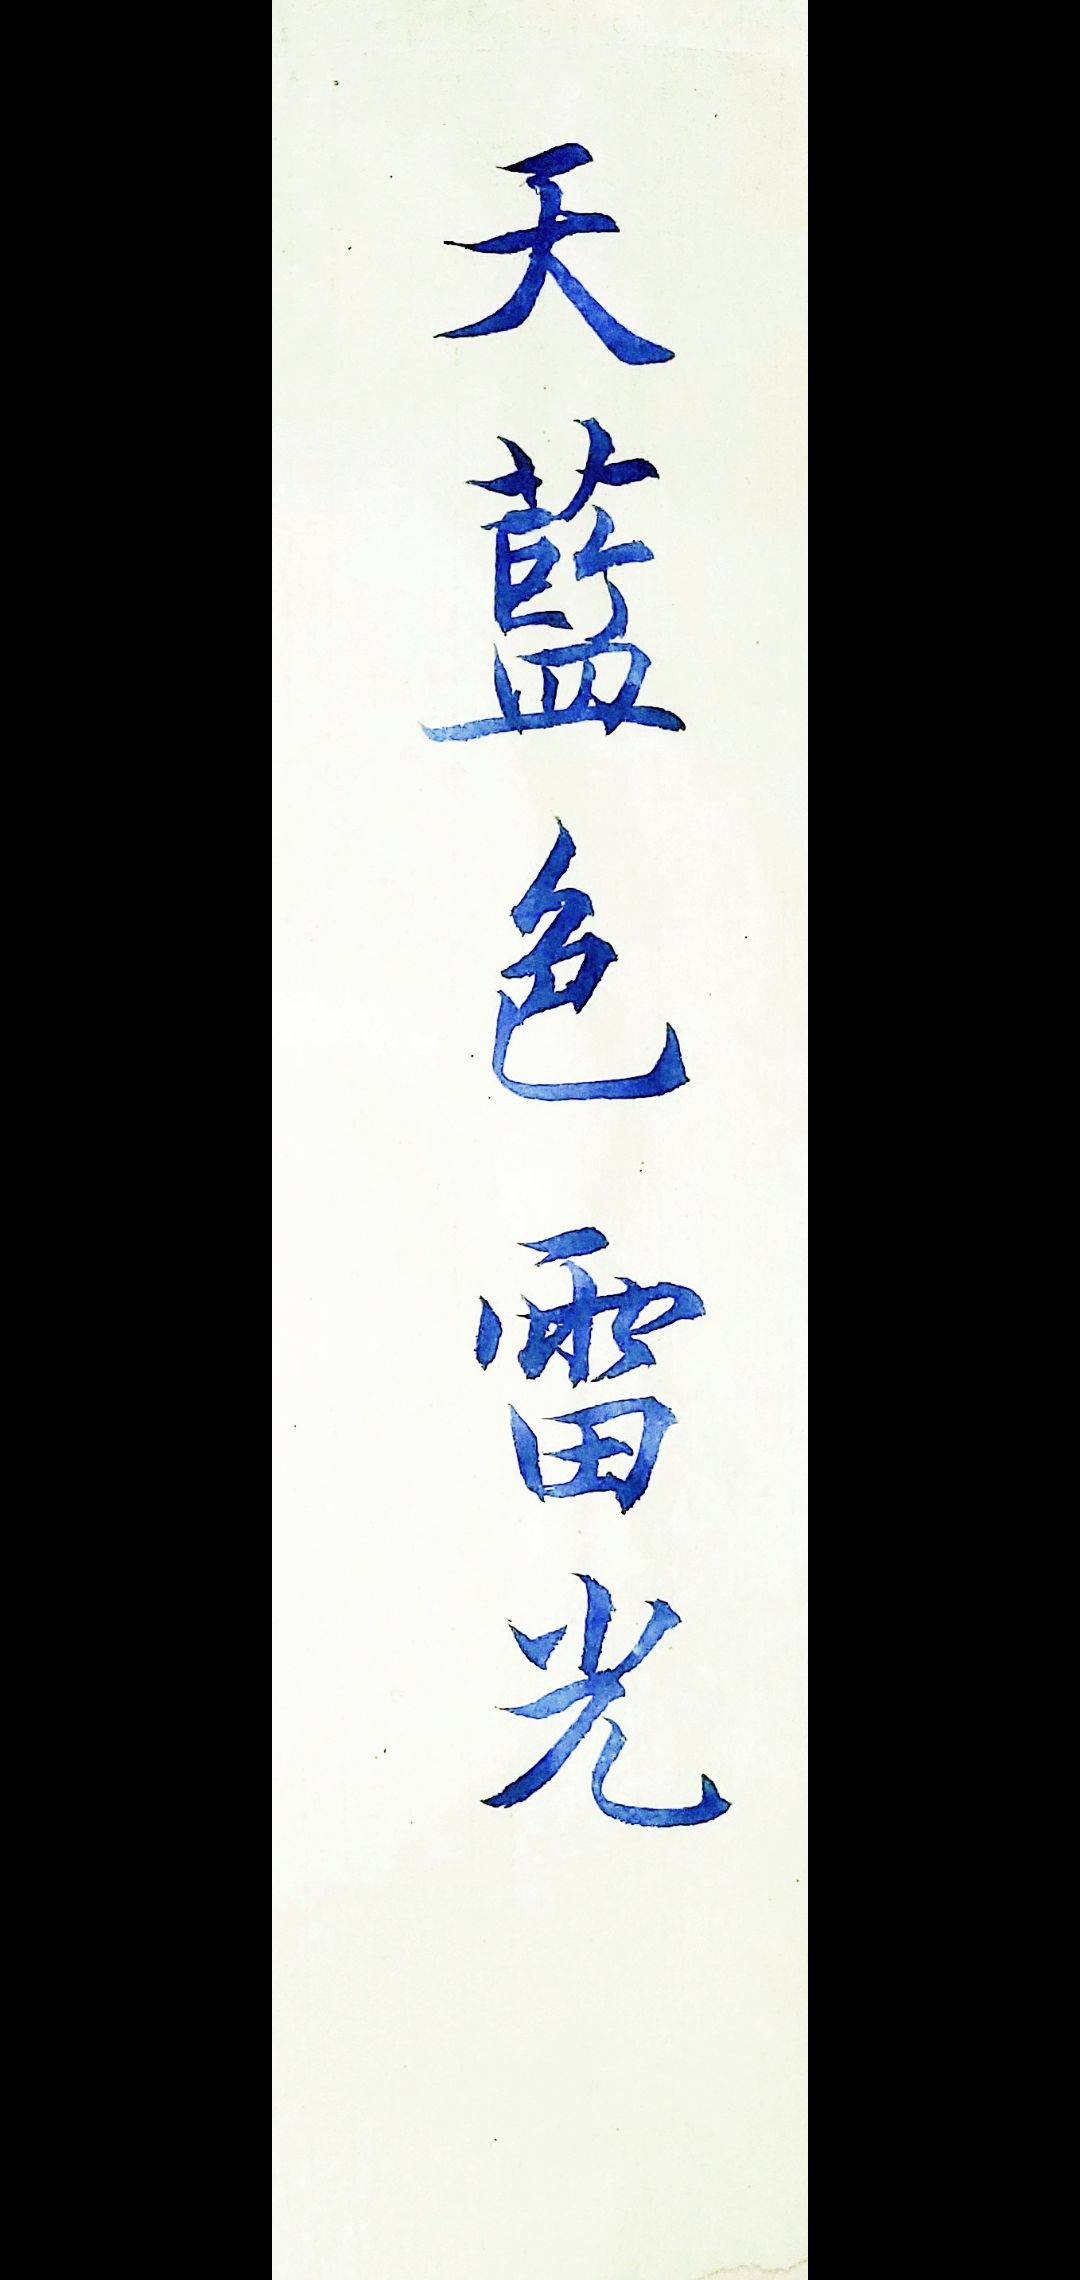 天藍色雷光